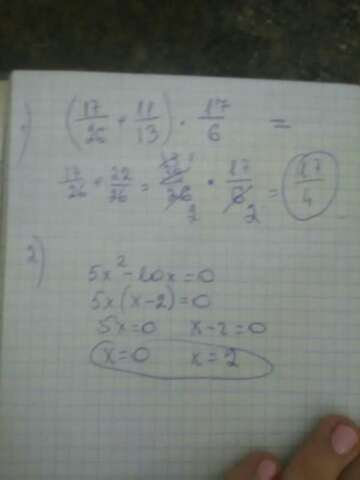 1) (17/26 + 11/13) · 17/6 =
17/26 + 22/26 = 39/26 · 17/6 = 17/4
2)
5x² - 10x = 0
5x(x-2) = 0
5x = 0 x-2 = 0
x = 0 x = 2